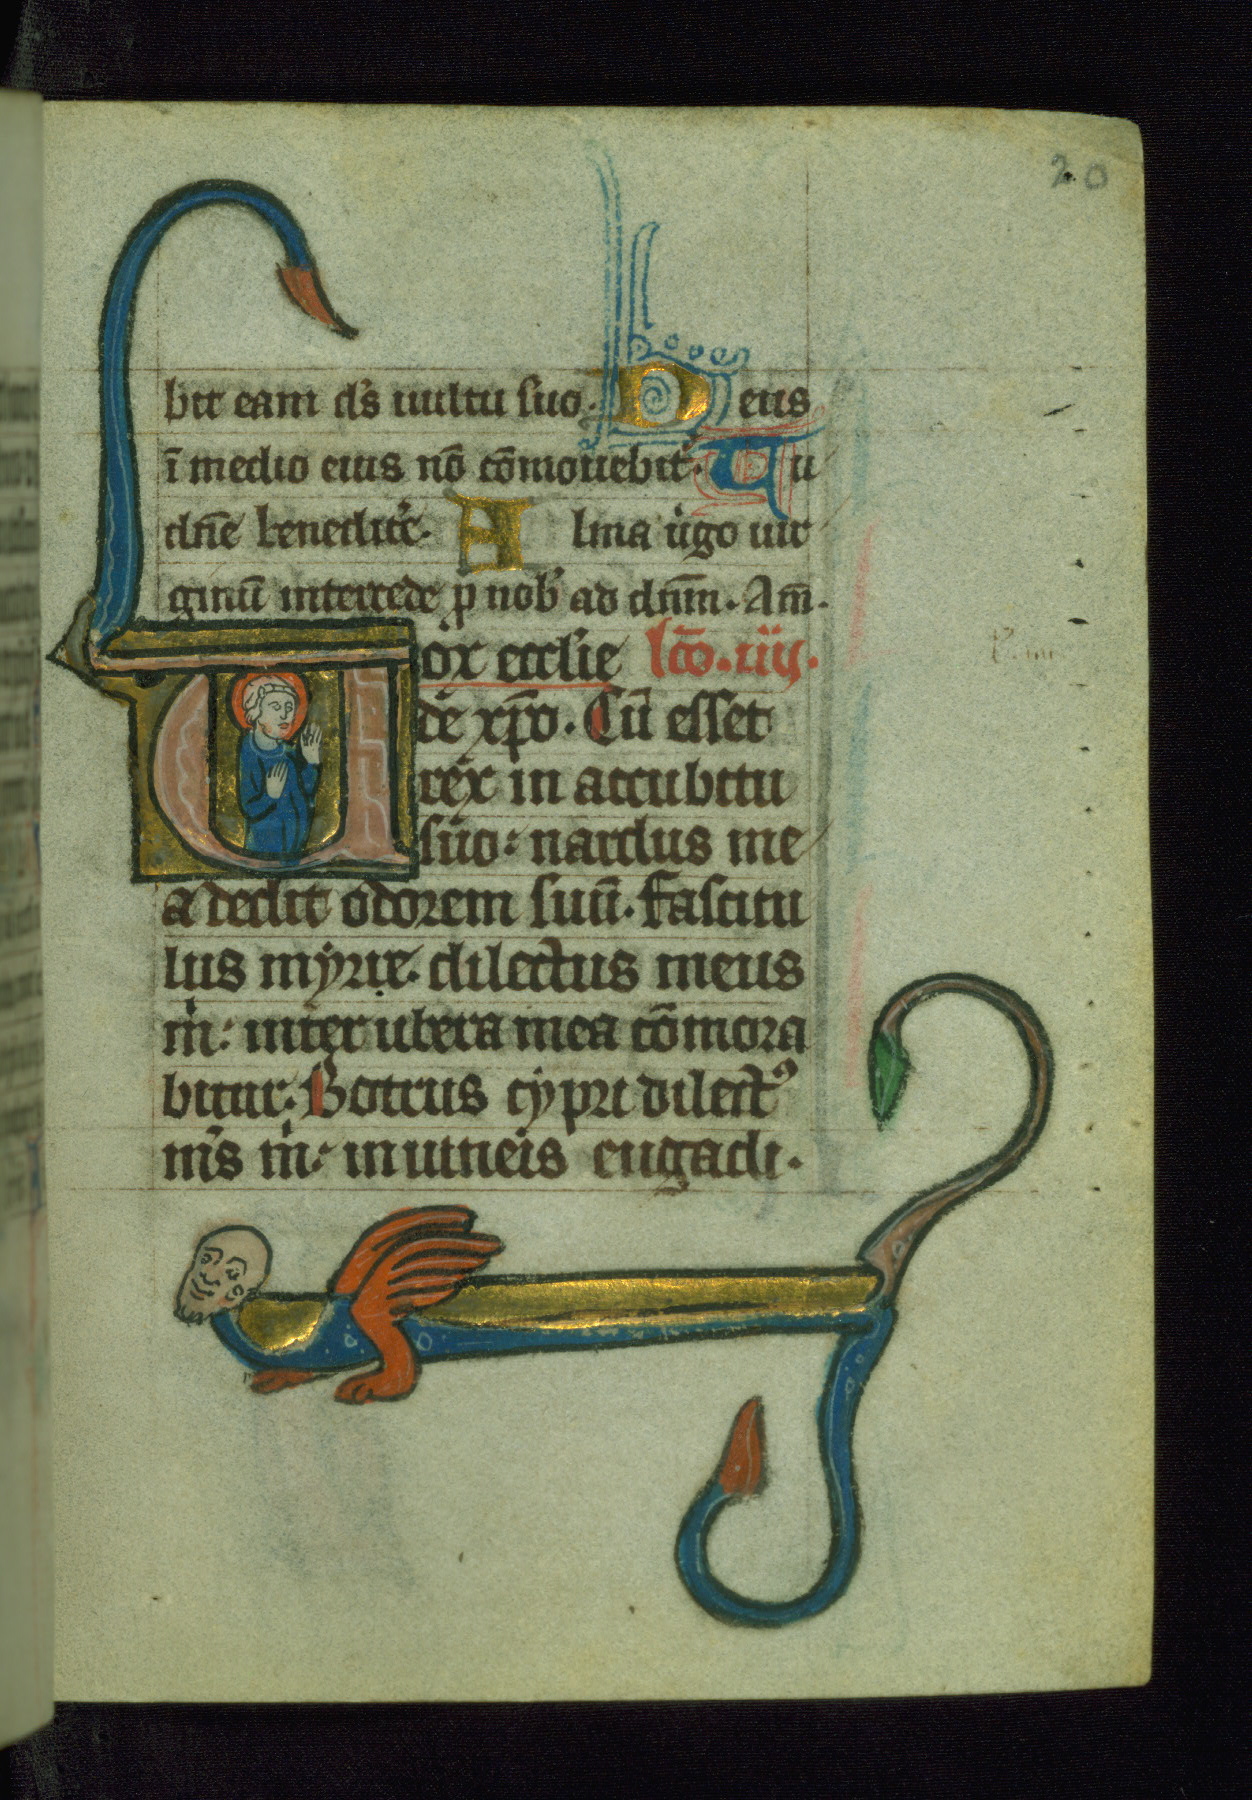 20
bit eam ds̄ uultu suo. Deus
ī medio eius nō cōmouebit᷑. Tu
dn̄e benedice᷑. Alma uͥgo uir
ginū intercede p̄ nob̄ ad dn̄m. Am̄.
Uox eccl'ie lc̄o. iiij.
de xp̄o. Cū esset
rex in accubitu
suo: nardus me
a dedit odorem suū. Fascicu
lus myrre. dilectus meus
mͥ: inter ubera mea cōmora
bitur. Botrus cypri dilectꝰ
ms̄ mͥ: in uineis engadi.